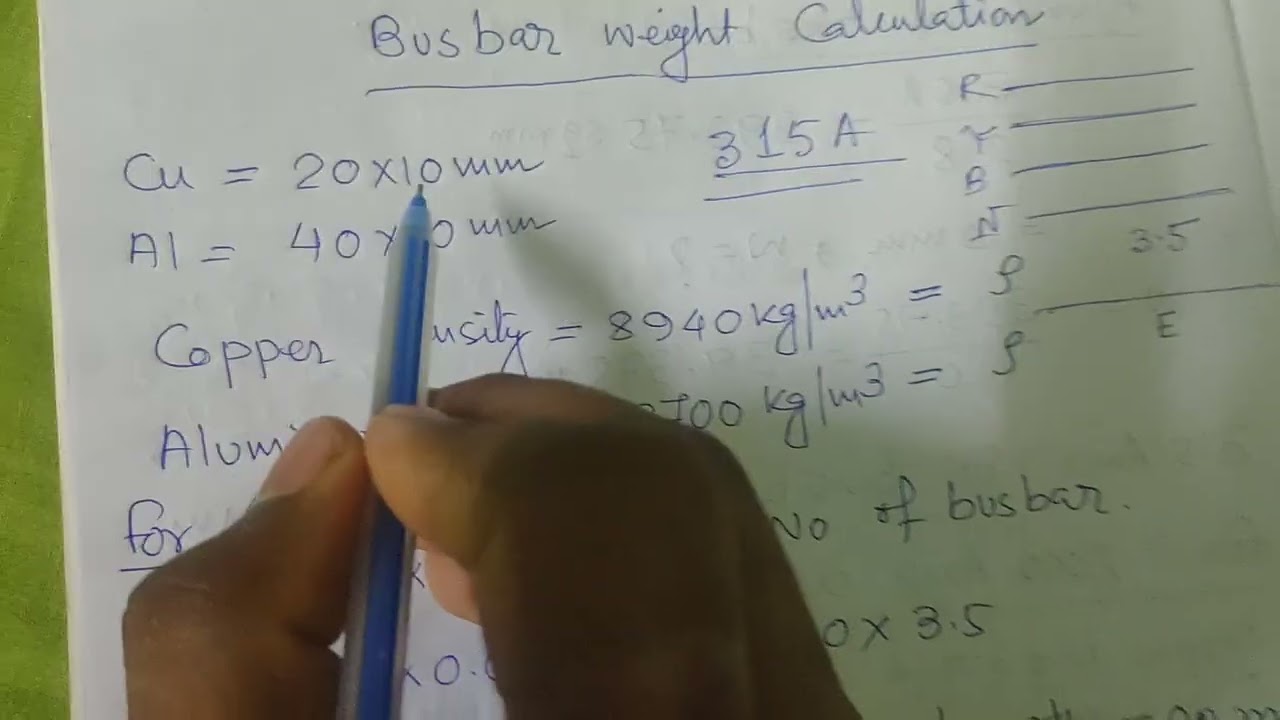 Busbar weight Calculation
R
315A
Y
Cu = 20x10mm
B
Al = 40x 0mm
N
3.5
Copper nsity = 8940kg/m³ = ρ
E
Alumi 2700 kg/m³ = ρ
for No of busbar.
0x 3.5
x 0.0